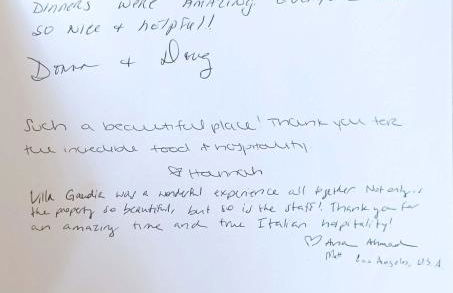 Dinners were amazing
so nice + helpful!
Donna + Doug
Such a beautiful place! Thank you for
the incredible food + hospitality
Hannah
Villa Gaudia was a wonderful experience all together Not only is
the property so beautiful, but so is the staff! Thank you for
an amazing time and true Italian hospitality!
♡ Ana Ahmad
Matt Los Angeles, USA